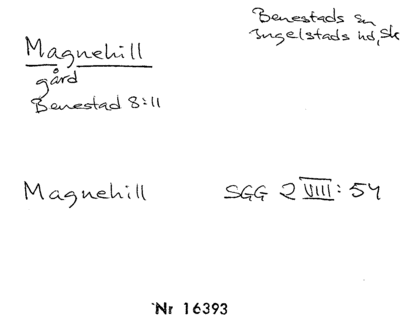 Magnehill
gård
Benestad 8:11
Benestads sn
Ingelstads hd, Sk
Magnehill SGG 2 VIII: 54
Nr 16393